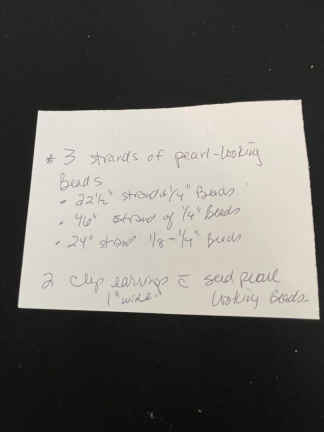 * 3 strands of pearl-looking
Beads
• 22½" strand 1/4" Beads
• 46" strand of 1/4" Beads
• 24" strand 1/8-1/4" Beads
2 clip earrings c̄ seed pearl
1" wide. looking Beads.